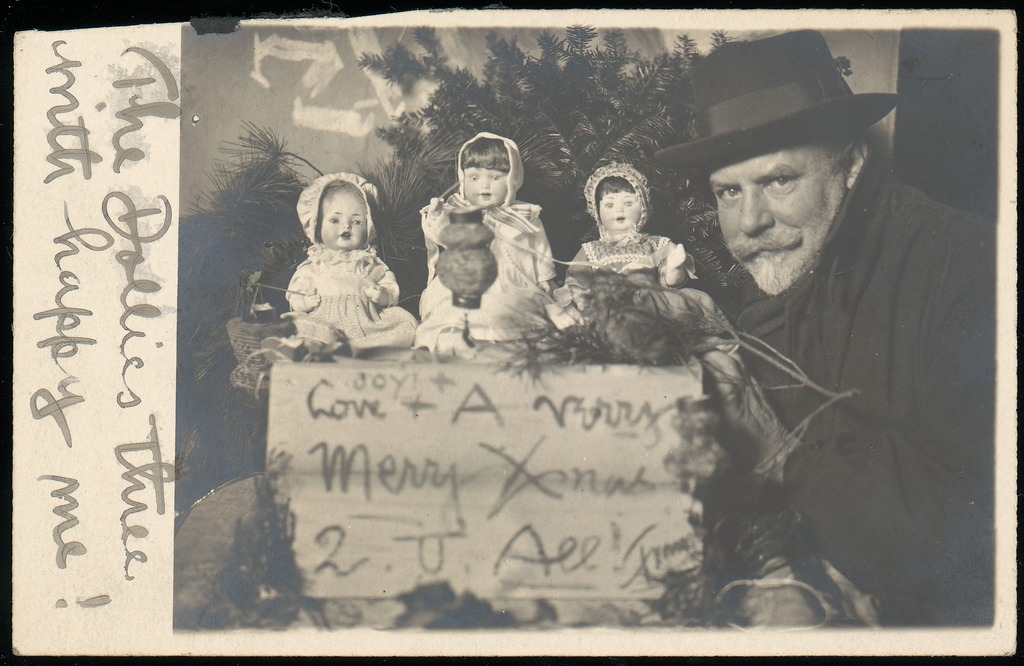 The Dollies Three
with happy me!
Joy! +
Love + A Verry
Merry Xmas
2. U. All!